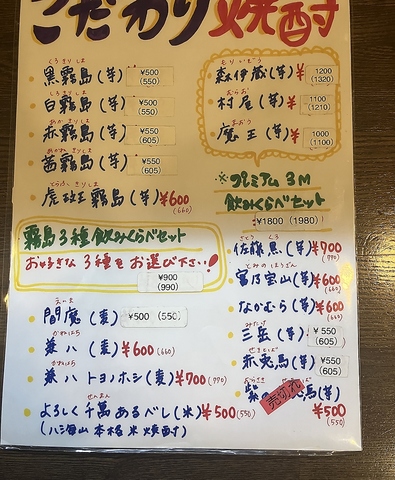 こだわり焼酎
くろきりしま
黒霧島(芋) ¥500
(550)
しろきりしま
白霧島(芋) ¥500
(550)
あかきりしま
赤霧島(芋) ¥550
(605)
あかねきりしま
茜霧島(芋) ¥550
(605)
虎斑霧島(芋) ¥600
(660)
霧島3種飲みくらべセット
お好きな3種をお選び下さい!
¥900
(990)
えんま
閻魔(麦) ¥500 (550)
かねはち
兼八(麦) ¥600(660)
かねはち
兼八トヨノホシ(麦) ¥700(770)
せんまん
よろしく千萬あるべし(米) ¥500(550)
(八海山本格米焼酎)
もりいぞう
森伊蔵(芋) ¥ 1200
(1320)
むらお
村尾(芋) ¥ 1100
(1210)
まおう
魔王(芋) ¥ 1000
(1100)
※プレミアム3M
飲みくらべセット
¥1800 (1980)
さとうくろ
佐藤黒(芋) ¥900
(990)
とみのほうざん
富乃宝山(芋) ¥600
(660)
なかむら(芋) ¥600
(660)
みたけ
三岳(芋) ¥550
(605)
赤兎馬(芋) ¥550
(605)
紫 兎馬(芋) ¥500
(550)
売切れ